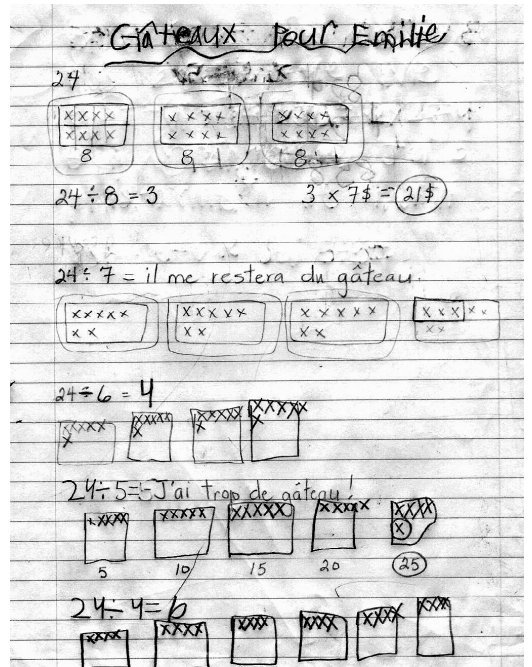 Gâteaux Pour Emilie
24
x x x x x x x x x x x x
x x x x x x x x x x x x
8 8 8
24 ÷ 8 = 3 3 x 7$ = 21$
24 ÷ 7 = il me restera du gâteau.
x x x x x x x x x x x x x x x x x x x x
x x x x x x x x
24 ÷ 6 = 4
xxxxx xxxxx xxxxx xxxxx
x x x x
24 ÷ 5 = J'ai trop de gâteau!
xxxxx xxxxx xxxxx xxxxx xxxx
x
5 10 15 20 25
24 ÷ 4 = 6
xxxx xxxx xxxx xxxx xxxx xxxx